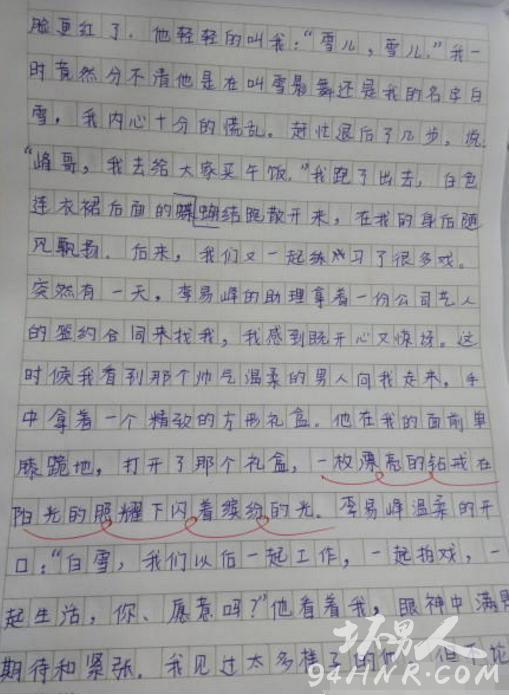 脸更红了。他轻轻的叫我："雪儿，雪儿。"我一
时竟然分不清他是在叫雪影舞还是我的名字白
雪，我内心十分的慌乱。赶忙退后了几步，说：
"峰哥，我去给大家买午饭。"我跑了出去，白色
连衣裙后面的蝴蝶结跑散开来，在我的身后随
风飘扬。后来，我们又一起练习了很多戏。
突然有一天，李易峰的助理拿着一份公司艺人
的签约合同来找我，我感到既开心又惊讶。这
时候我看到那个帅气温柔的男人向我走来，手
中拿着一个精致的方形礼盒。他在我的面前单
膝跪地，打开了那个礼盒，一枚漂亮的钻戒在
阳光的照耀下闪着缤纷的光。李易峰温柔的开
口："白雪，我们以后一起工作，一起拍戏，一
起生活，你、愿意吗？"他看着我，眼神中满是
期待和紧张。我见过太多样子的他，但不论
坏男人
94HNR.COM